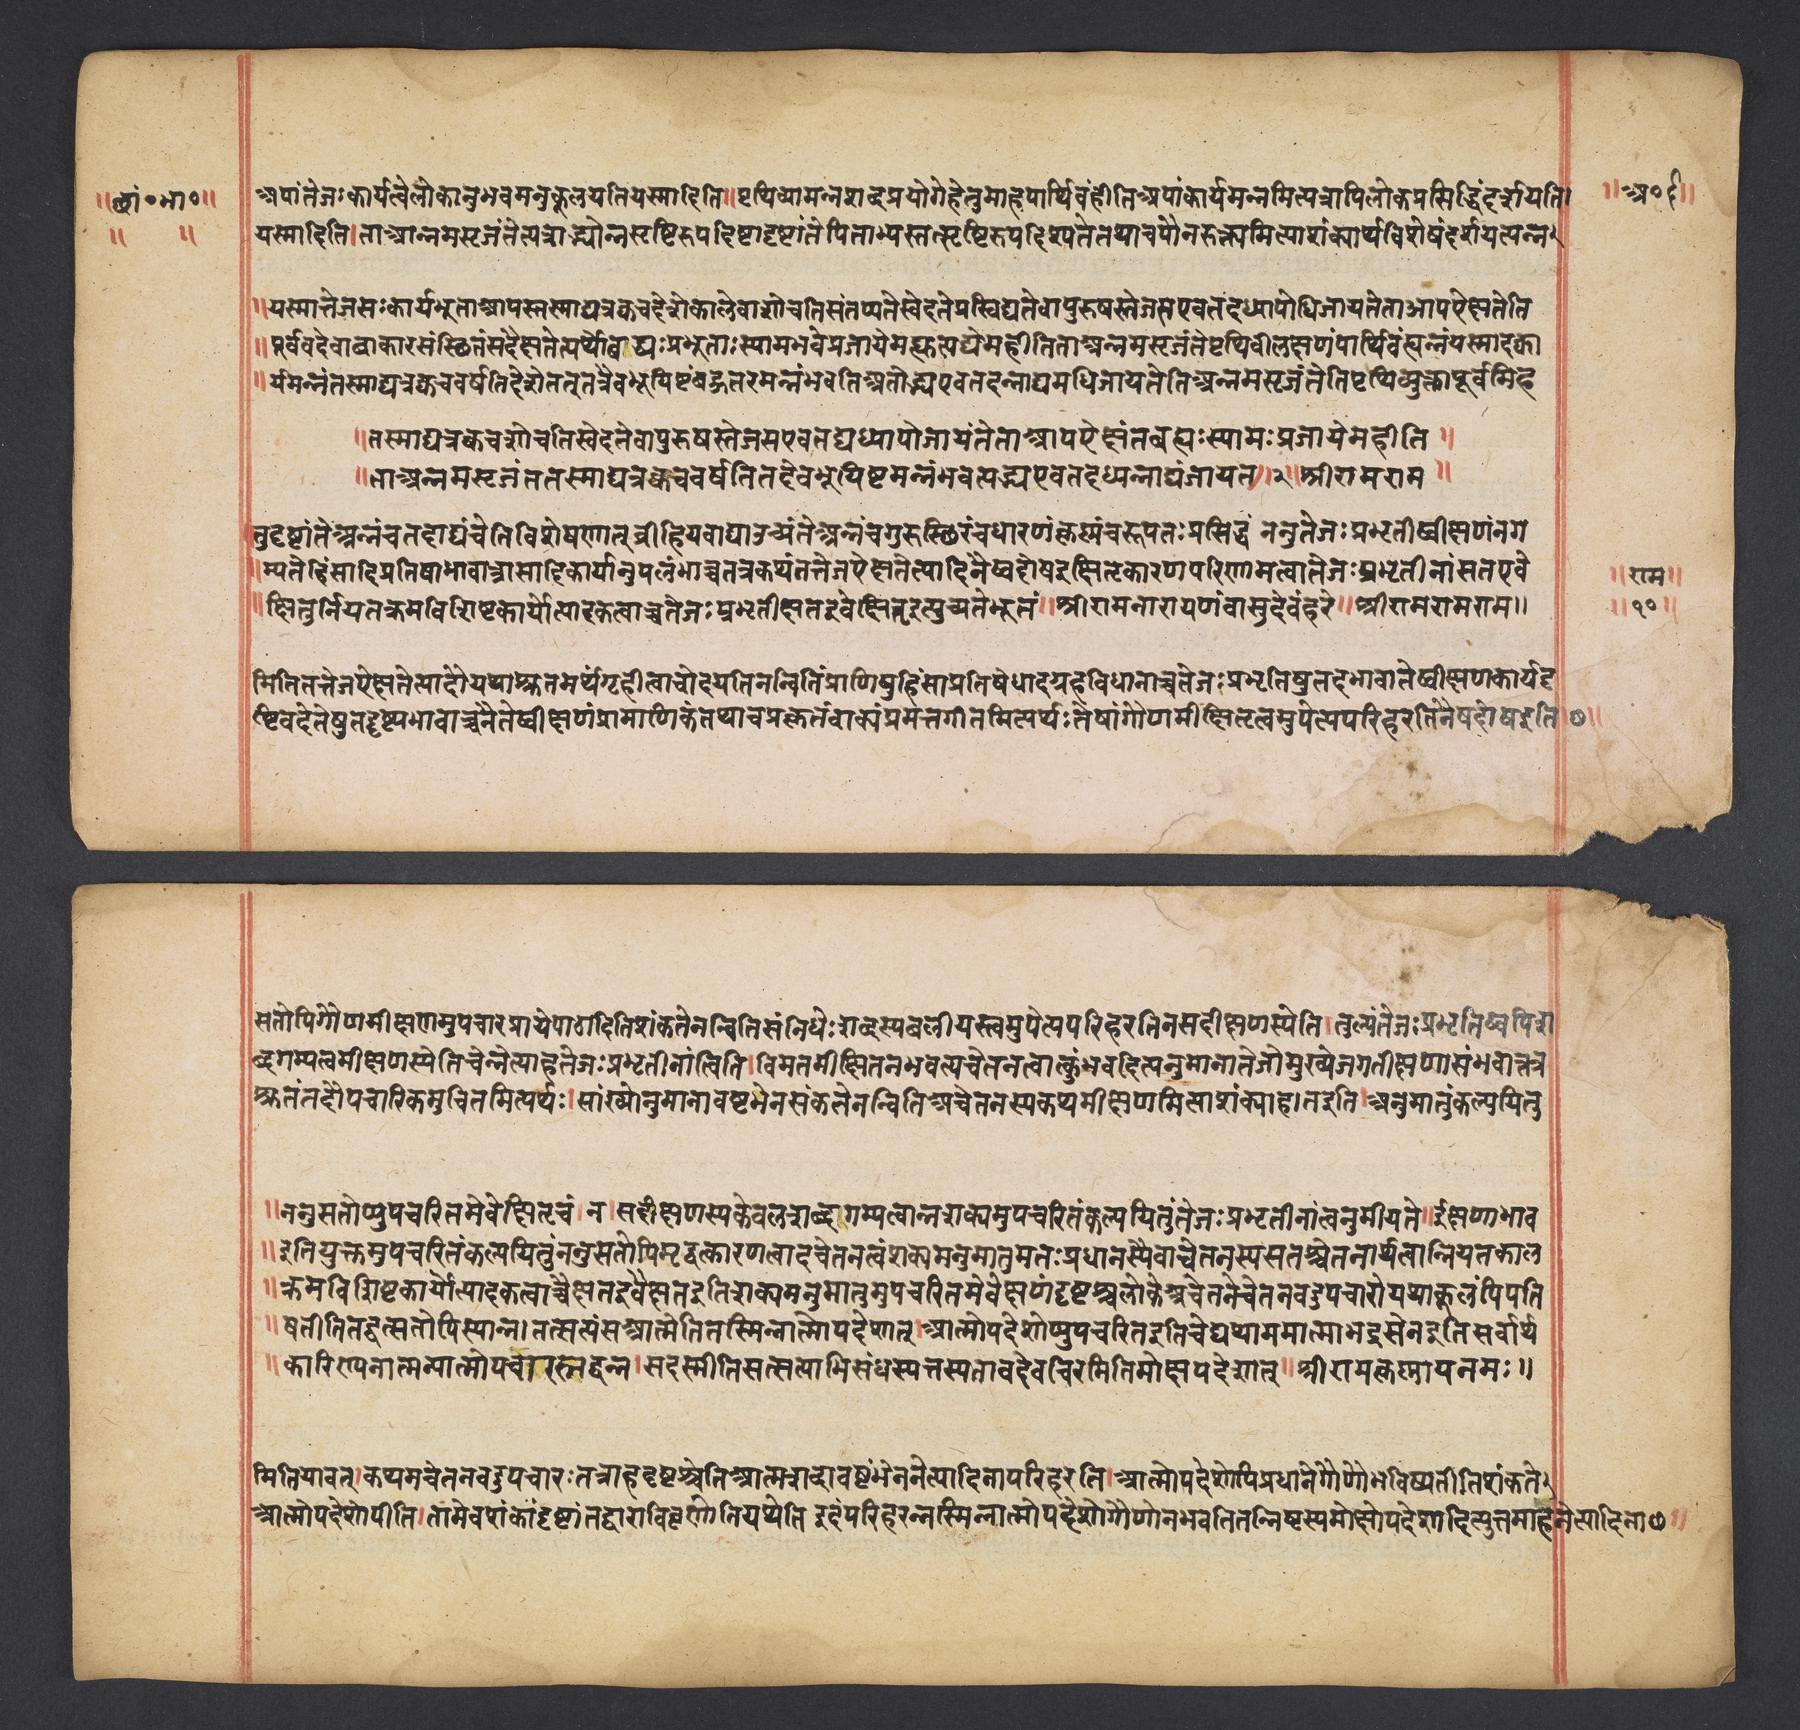 ॥छां०भा०॥
॥ ॥
अपांतेजःकार्यत्वेलोकानुभवमनुकूलयतियस्मादिति॥पृथिव्यामन्नशब्दप्रयोगेहेतुमाहपार्थिवंहीतिअपांकार्यमन्नमित्यत्रापिलोकप्रसिद्धिंदर्शयति।
॥अ०६॥
यस्मादिति।ताआन्नमसृजंतेत्यत्राद्भ्योन्नसृष्टिरुपदिष्टादृष्टांतेपिताभ्यस्तत्सृष्टिरुपदिश्यतेतथाचपौनरुक्त्यमित्याशंक्यार्थविशेषंदर्शयत्यन्न
॥यस्मात्तेजसःकार्यभूताआपस्तस्माद्यत्रक्वचदेशेकालेवाशोचतिसंतप्यतेस्वेदतेप्रस्विद्यतेवापुरुषस्तेजसएवतदध्यापोधिजायंतेताआपऐक्षंतेति
॥पूर्ववदेवाबाकारसंस्थितंसदैक्षतेत्यर्थोबाद्यःप्रभूताःस्यामभवेमप्रजायेमह्युत्पद्येमहीतिताअन्नमसृजंतेपृथिवीलक्षणंपार्थिवंह्यन्नंयस्मादप्का
॥र्यमन्नंतस्माद्यत्रक्वचवर्षतिदेशेतत्तत्रैवभूयिष्टंबहुतरमन्नंभवतिअतोद्भ्यएवतदन्नाद्यमधिजायतेतिअन्नमसृजंतेतिपृथिव्युक्तापूर्वमिह
॥तस्माद्यत्रक्वचशोचतिस्वेदतेवापुरुषस्तेजसएवतदध्यापोजायंतेताआपऐक्षंतबह्व्यःस्यामःप्रजायेमहीति॥
॥ताअन्नमसृजंततस्माद्यत्रक्वचवर्षतितदेवभूयिष्टमन्नंभवत्यद्भ्यएवतदध्यन्नाद्यंजायत॥२॥श्रीरामराम॥
तुदृष्टांतेअन्नंचतदाद्यंचेतिविशेषणात्व्रीहियवाद्याउच्यंतेअन्नंचगुरुस्थिरंचधारणंकृष्णंचरूपतःप्रसिद्धं ननुतेजःप्रभृतीष्वीक्षणंनग
॥म्यतेहिंसादिप्रतिषेधाभावात्त्रासादिकार्यानुपलंभाच्चतत्रकथंतत्तेजऐक्षतेत्यादिनैष्वदोषईक्षितृकारणपरिणामत्वात्तेजःप्रभृतीनांसतएवे
॥राम॥
॥क्षितुर्नियतक्रमविशिष्टकार्योत्पादकत्वाच्चतेजःप्रभृतीक्षतइवेक्षितइत्युच्यतेभूतं॥श्रीरामनारायणंवासुदेवंहरे॥श्रीरामरामराम॥
॥१०॥
मितितत्तेजऐक्षतेत्यादौयथाश्रुतमर्थंगृहीत्वाचोदयतिनन्वितिप्राणिषुहिंसाप्रतिषेधादनुग्रहविधानाच्चतेजःप्रभृतिषुतदभावात्तेष्वीक्षणकार्यदृ
ष्टिवदेतेषुतदृष्ट्यभावाच्चनैतेष्वीक्षणंप्रामाणिकंतथाचप्रकृतंवाक्यंप्रमत्तगीतमित्यर्थःतेषांगौणमीक्षितृत्वमुपेत्यपरिहरतिनैषदोषइति॥
सतोपिगौणमीक्षणमुपचारप्रायेपाठादितिशंकतेनन्वितिसंनिधेःशब्दस्यबलीयस्त्वमुपेत्यपरिहरतिनसदीक्षणस्येति।तुल्यंतेजःप्रभृतिष्वपिश
ब्दगम्यत्वमीक्षणस्येतिचेन्नेत्याहतेजःप्रभृतीनांत्विति।विमतमीक्षितनभवत्यचेतनत्वात्कुंभवदित्यनुमानात्तेजोमुख्येजगतीक्षणासंभवात्तत्र
श्रुतंतदौपचारिकमुचितमित्यर्थः।सांख्योनुमानावष्टंभेनसंकतेनन्वितिअचेतनस्यकथमीक्षणमित्याशंक्याह।तइति।अनुमातुंकल्पयितु
॥ननुसतोप्युपचरितमेवेक्षितृत्वं।न।सदीक्षणस्यकेवलशब्दगम्यत्वान्नशक्यमुपचरितंकल्पयितुंतेजःप्रभृतीनांत्वनुमीयते॥ईक्षणाभाव
॥इतियुक्तमुपचरितंकल्पयितुंननुसतोपिमृद्वत्कारणत्वादचेतनत्वंशक्यमनुमातुमतःप्रधानस्यैवाचेतनस्यसतश्चेतनार्थत्वान्नियतकाल
॥क्रमविशिष्टकार्योत्पादकत्वाच्चैक्षतइवैक्षतइतिशक्यमनुमातुमुपचरितमेवेक्षणंदृष्टश्चलोकेअचेतनेचेतनवदुपचारोयथाकूलंपिपति
॥षतीतितद्वत्सतोपिस्यान्न।तत्सत्यंसआत्मेतितस्मिन्नात्मोपदेशात्।आत्मोपदेशोप्युपचरितइतिचेद्यथाममात्माभद्रसेनइतिसर्वार्थ
॥कारिण्यनात्मन्यात्मोपचारस्तद्वन्न।सदस्मीतिसत्सत्याभिसंधस्यत्तस्यतावदेवचिरमितिमोक्षपदेशात्॥श्रीरामकृष्णायनमः॥
मितियावत्।कथमचेतनवदुपचारःतत्राहदृष्टश्चेतिआत्मशब्दावष्टंभेननेत्यादिनापरिहरति।आत्मोपदेशोपिप्रधानेगौणोभविष्यतीतिशंकते
आत्मोपदेशोपीति।तामेवशंकांदृष्टांतद्वाराविवृणोतियथेति इहंपरिहरन्नस्मिन्नात्मोपदेशोगौणोनभवतितन्निष्टस्यमोक्षोपदेशादित्युत्तमाहनेत्यादिना॥